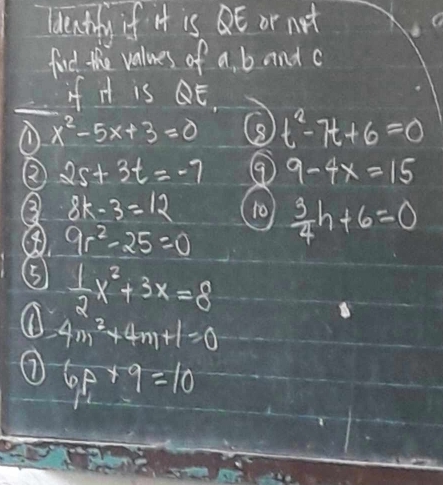 Identify if it is QE or not
find the values of a, b and c
if it is QE.
① x²-5x+3=0
② 2s+3t=-7
③ 8k-3=12
④ 9r²-25=0
⑤ 1/2 x²+3x=8
⑥ 4m²+4m+1=0
⑦ 6p+9=10
⑧ t²-7t+6=0
⑨ 9-4x=15
⑩ 3/4 h+6=0